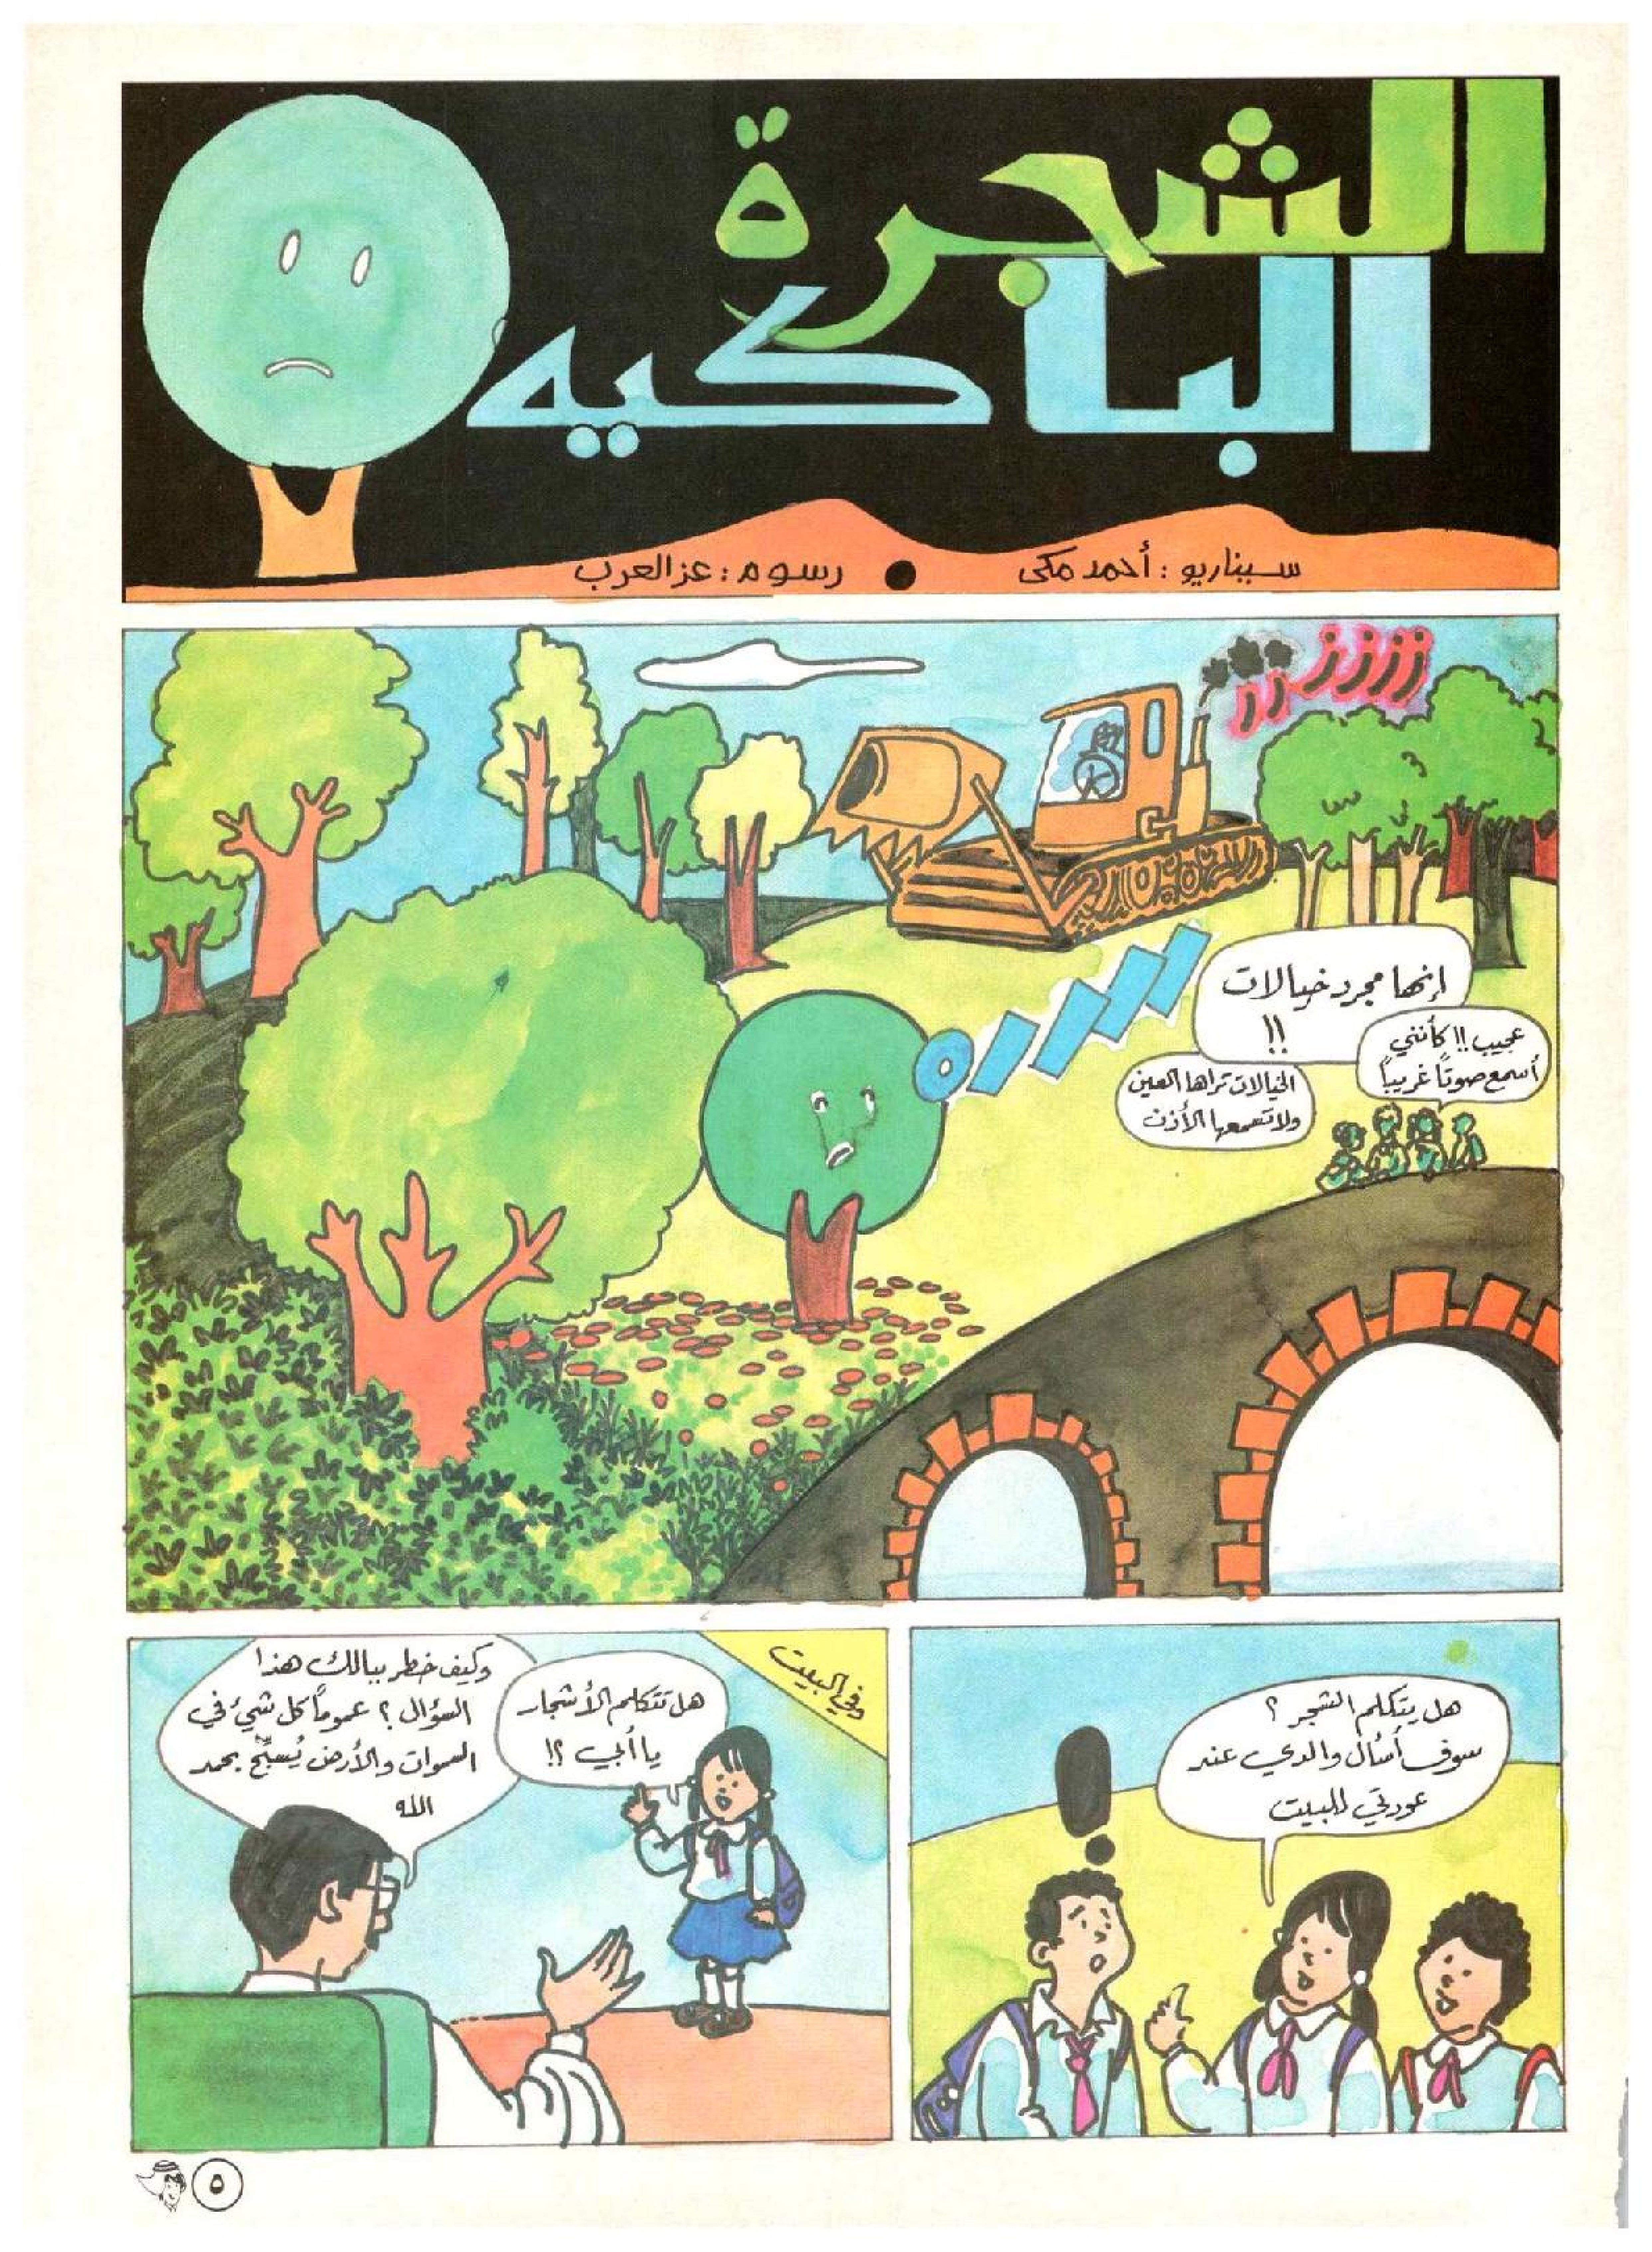 الشجرة
الباكيه
سيناريو : أحمد مكى ● رسوم : عز العرب
ززززز
إنها مجرد خيالات
!!
عجيب !! كأنني
أسمع صوتًا غريبًا
الخيالات تراها العين
ولا تسمعها الأذن
هل يتكلم الشجر ؟
سوف أسأل والدي عند
عودتي للبيت
وفي البيت
هل تتكلم الأشجار
يا أبي ؟!
وكيف خطر ببالك هذا
السؤال ؟ عمومًا كل شيء في
السموات والأرض يُسبِّح بحمد
الله
٥